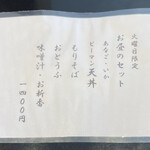 火曜日限定
お昼のセット
あなご・いか
ピーマン天丼
もりそば
おとうふ
味噌汁・お新香
一四〇〇円